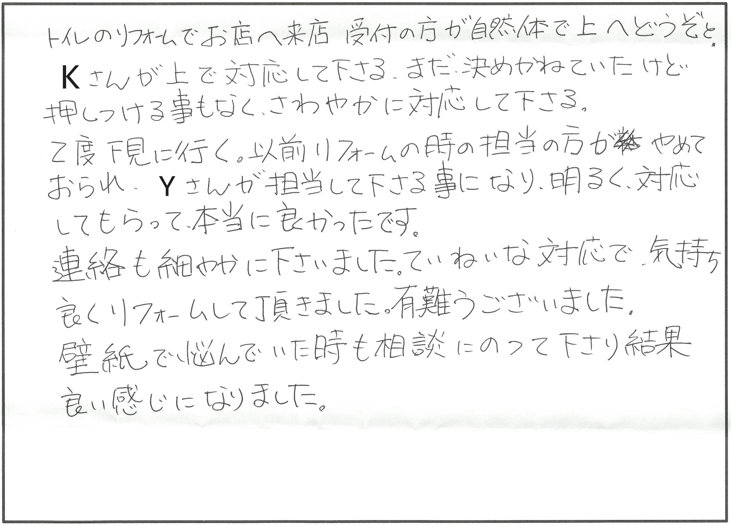 トイレのリフォームでお店へ来店 受付の方が自然体で上へどうぞと、
Kさんが上で対応して下さる、まだ、決めかねていたけど
押しつける事もなく、さわやかに対応して下さる。
2度下見に行く。以前リフォームの時の担当の方がやめて
おられ、Yさんが担当して下さる事になり、明るく、対応
してもらって、本当に良かったです。
連絡も細やかに下さいました。ていねいな対応で、気持ち
良くリフォームして頂きました。有難うございました。
壁紙で悩んでいた時も相談にのって下さり結果
良い感じになりました。